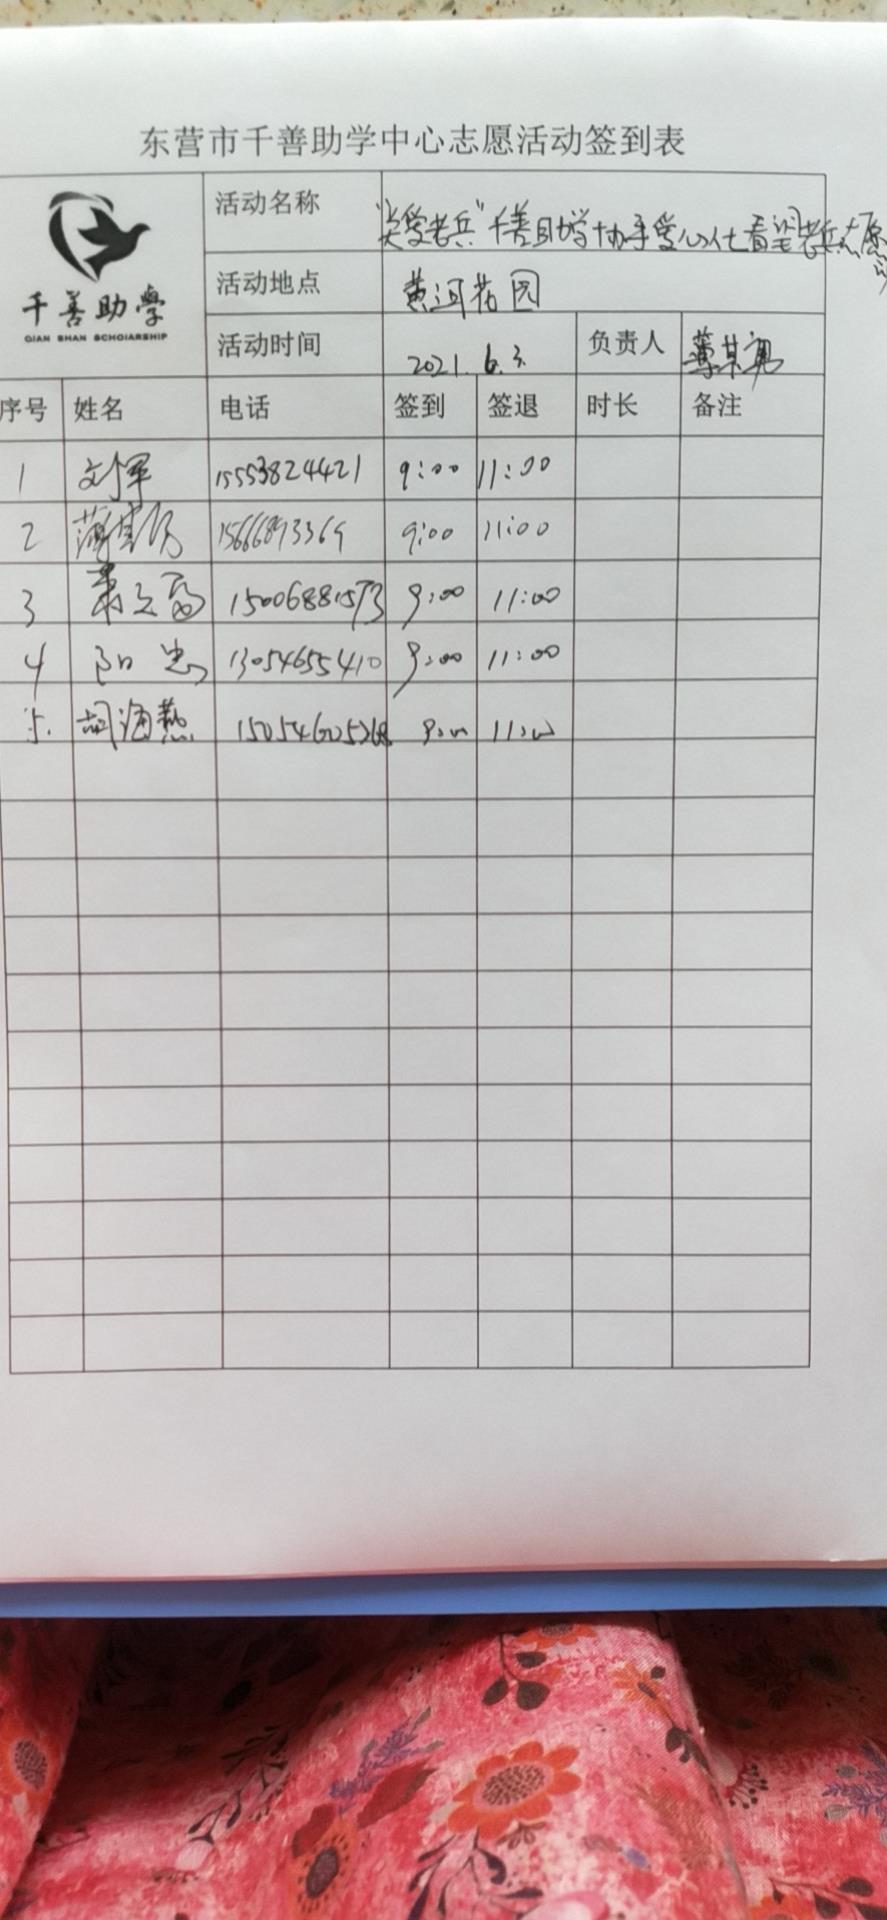 东营市千善助学中心志愿活动签到表
千善助學
QIAN SHAN SCHOIARSHIP
活动名称 "关爱老兵"千善助学协手爱心人士看望老兵志愿
活动地点 黄河花园
活动时间 2021.6.3. 负责人 薄其勇
序号 姓名 电话 签到 签退 时长 备注
1 刘军 15553824421 9:00 11:00
2 15666893369 9:00 11:00
3 15006881573 9:00 11:00
4 阳忠 13054655410 9:00 11:00
5. 胡海燕 9:00 11:00